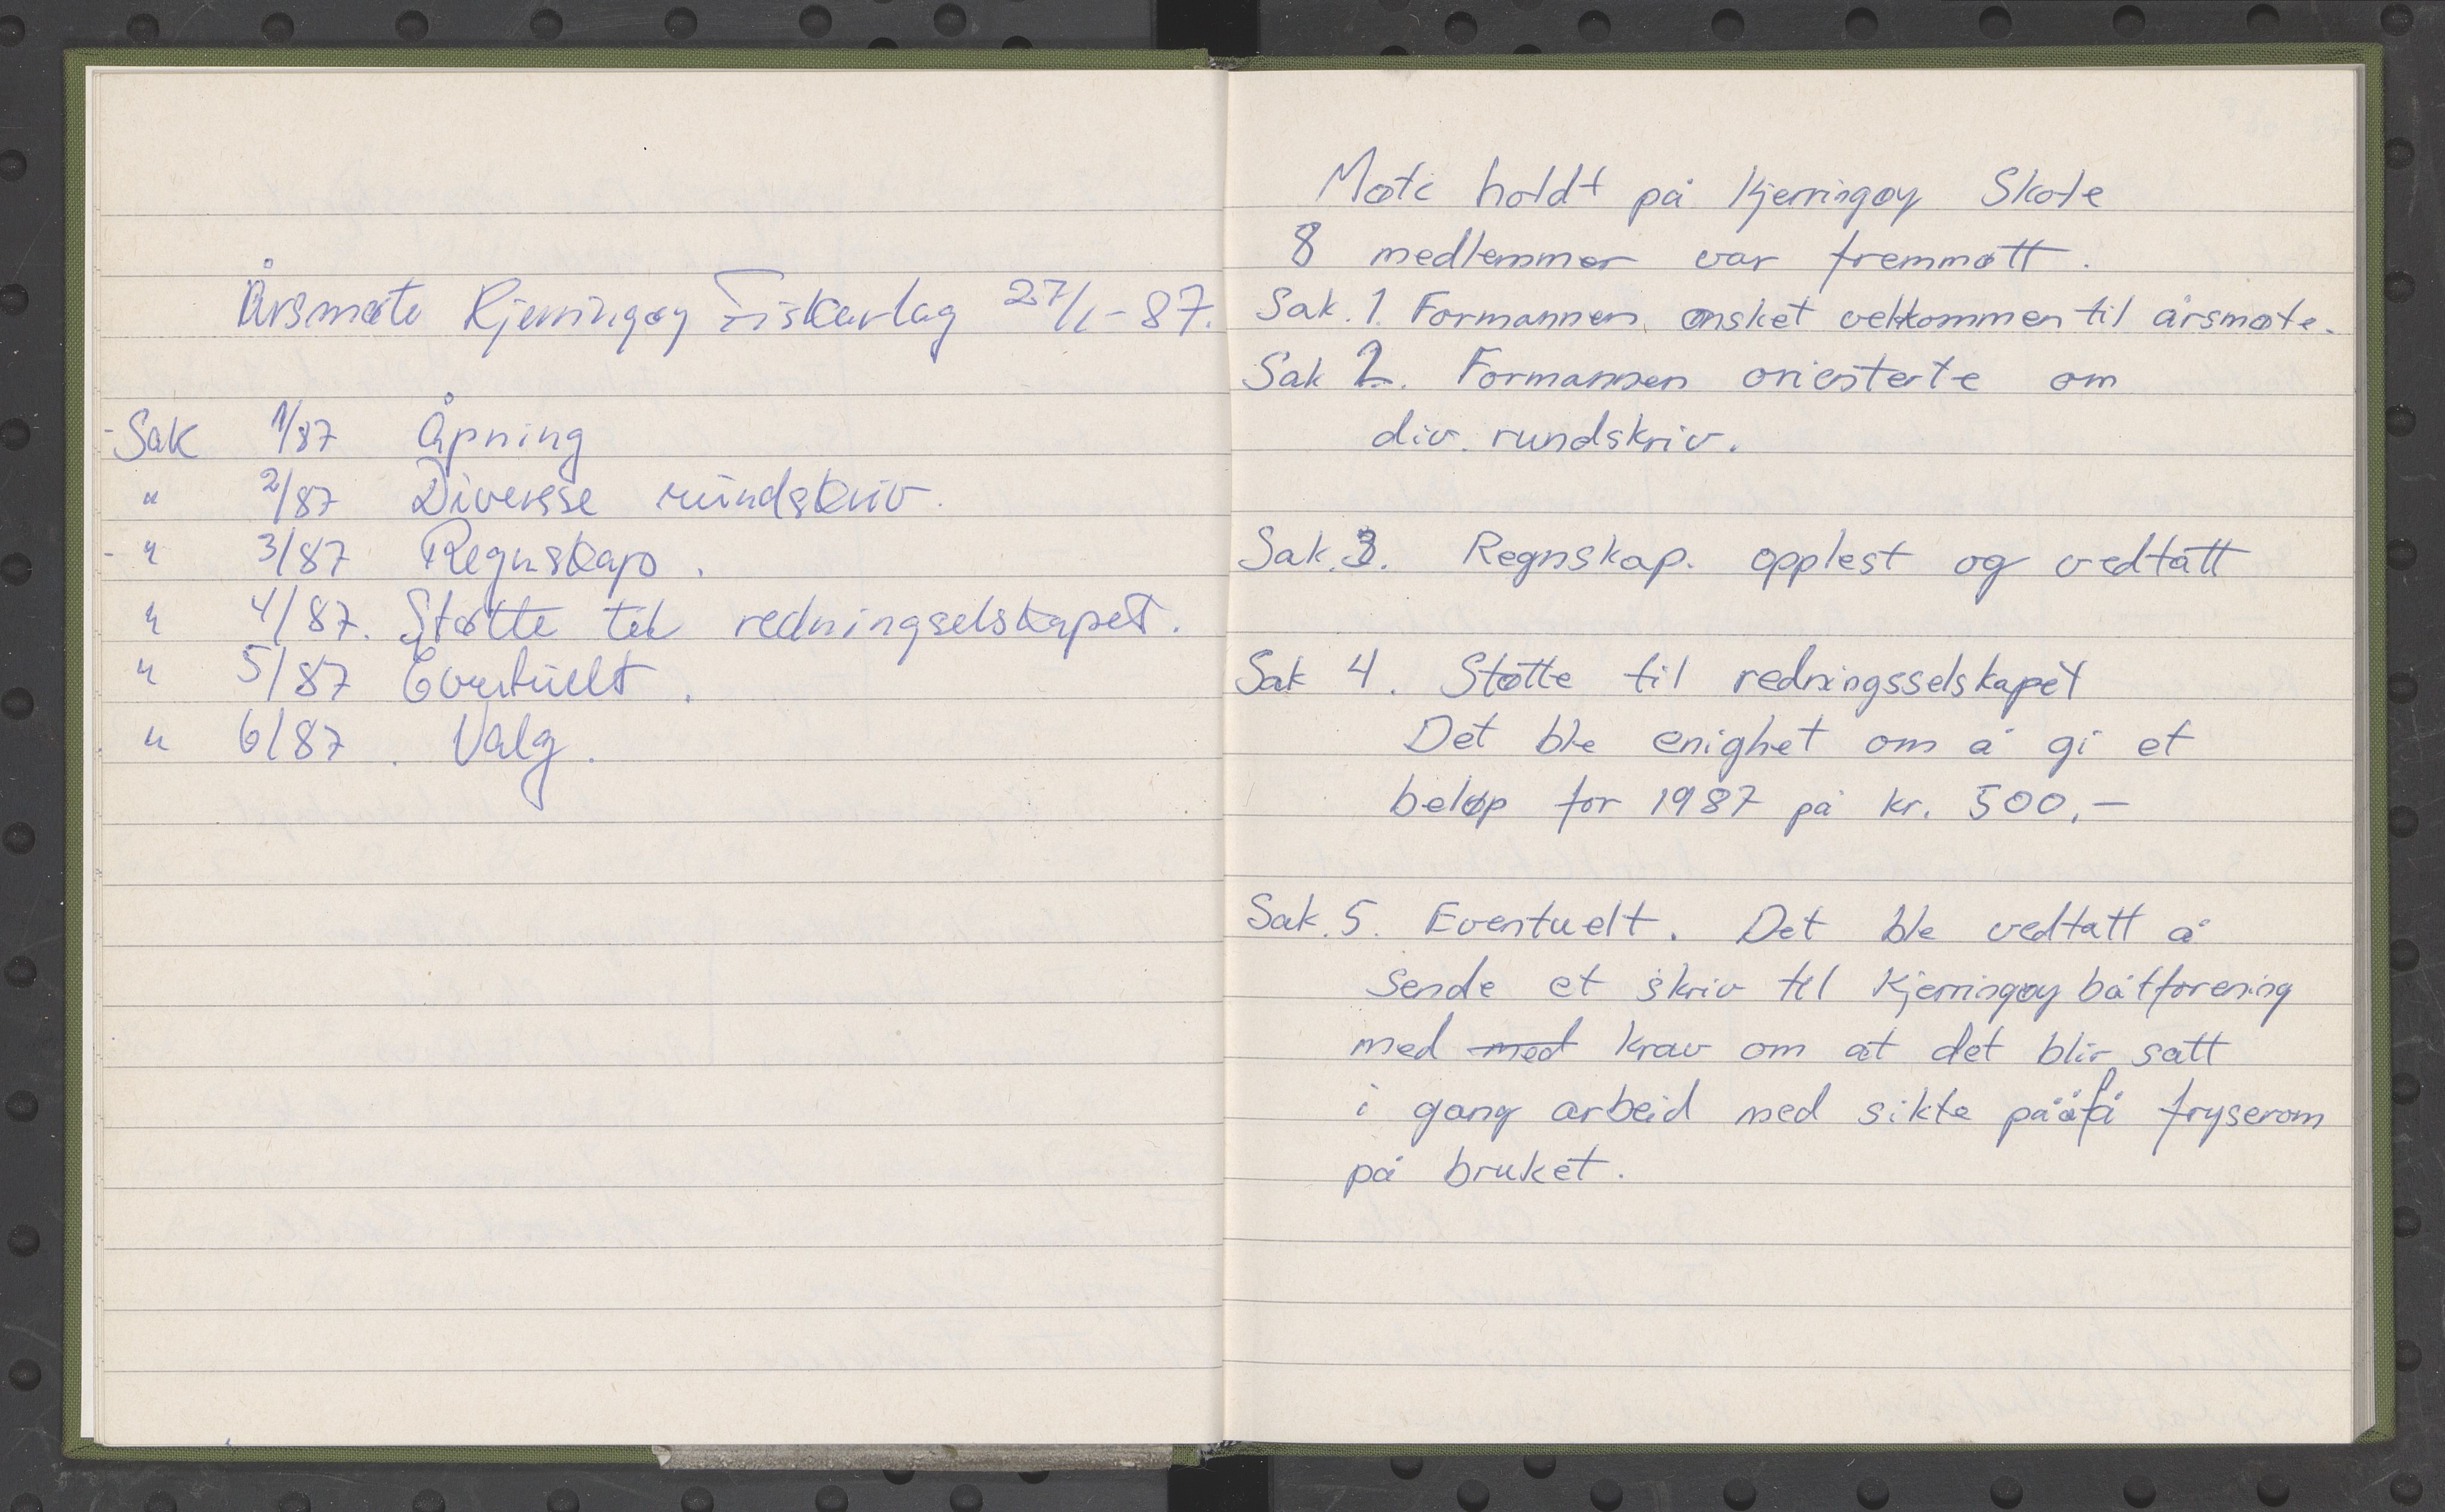 Årsmøte Kjerringøy Fiskarlag 27/1-87.
Sak 1/87 Åpning
" 2/87 Diversse rundskriv.
" 3/87 Regnskap.
" 4/87. Støtte til redningselskapet.
" 5/87 Eventuelt.
" 6/87. Valg.
Møte holdt på Kjerringøy Skole
8 medlemmer var fremmøtt.
Sak. 1. Formannen ønsket velkommen til årsmøte.
Sak 2. Formannen orienterte om
div. rundskriv.
Sak. 3. Regnskap. opplest og vedtatt
Sak 4. Støtte til redningsselskapet
Det ble enighet om å gi et
beløp for 1987 på kr. 500,-
Sak. 5. Eventuelt. Det ble vedtatt å
sende et skriv til Kjerringøy båtforening
med med krav om at det blir satt
i gang arbeid med sikte på å få fryserom
på bruket.